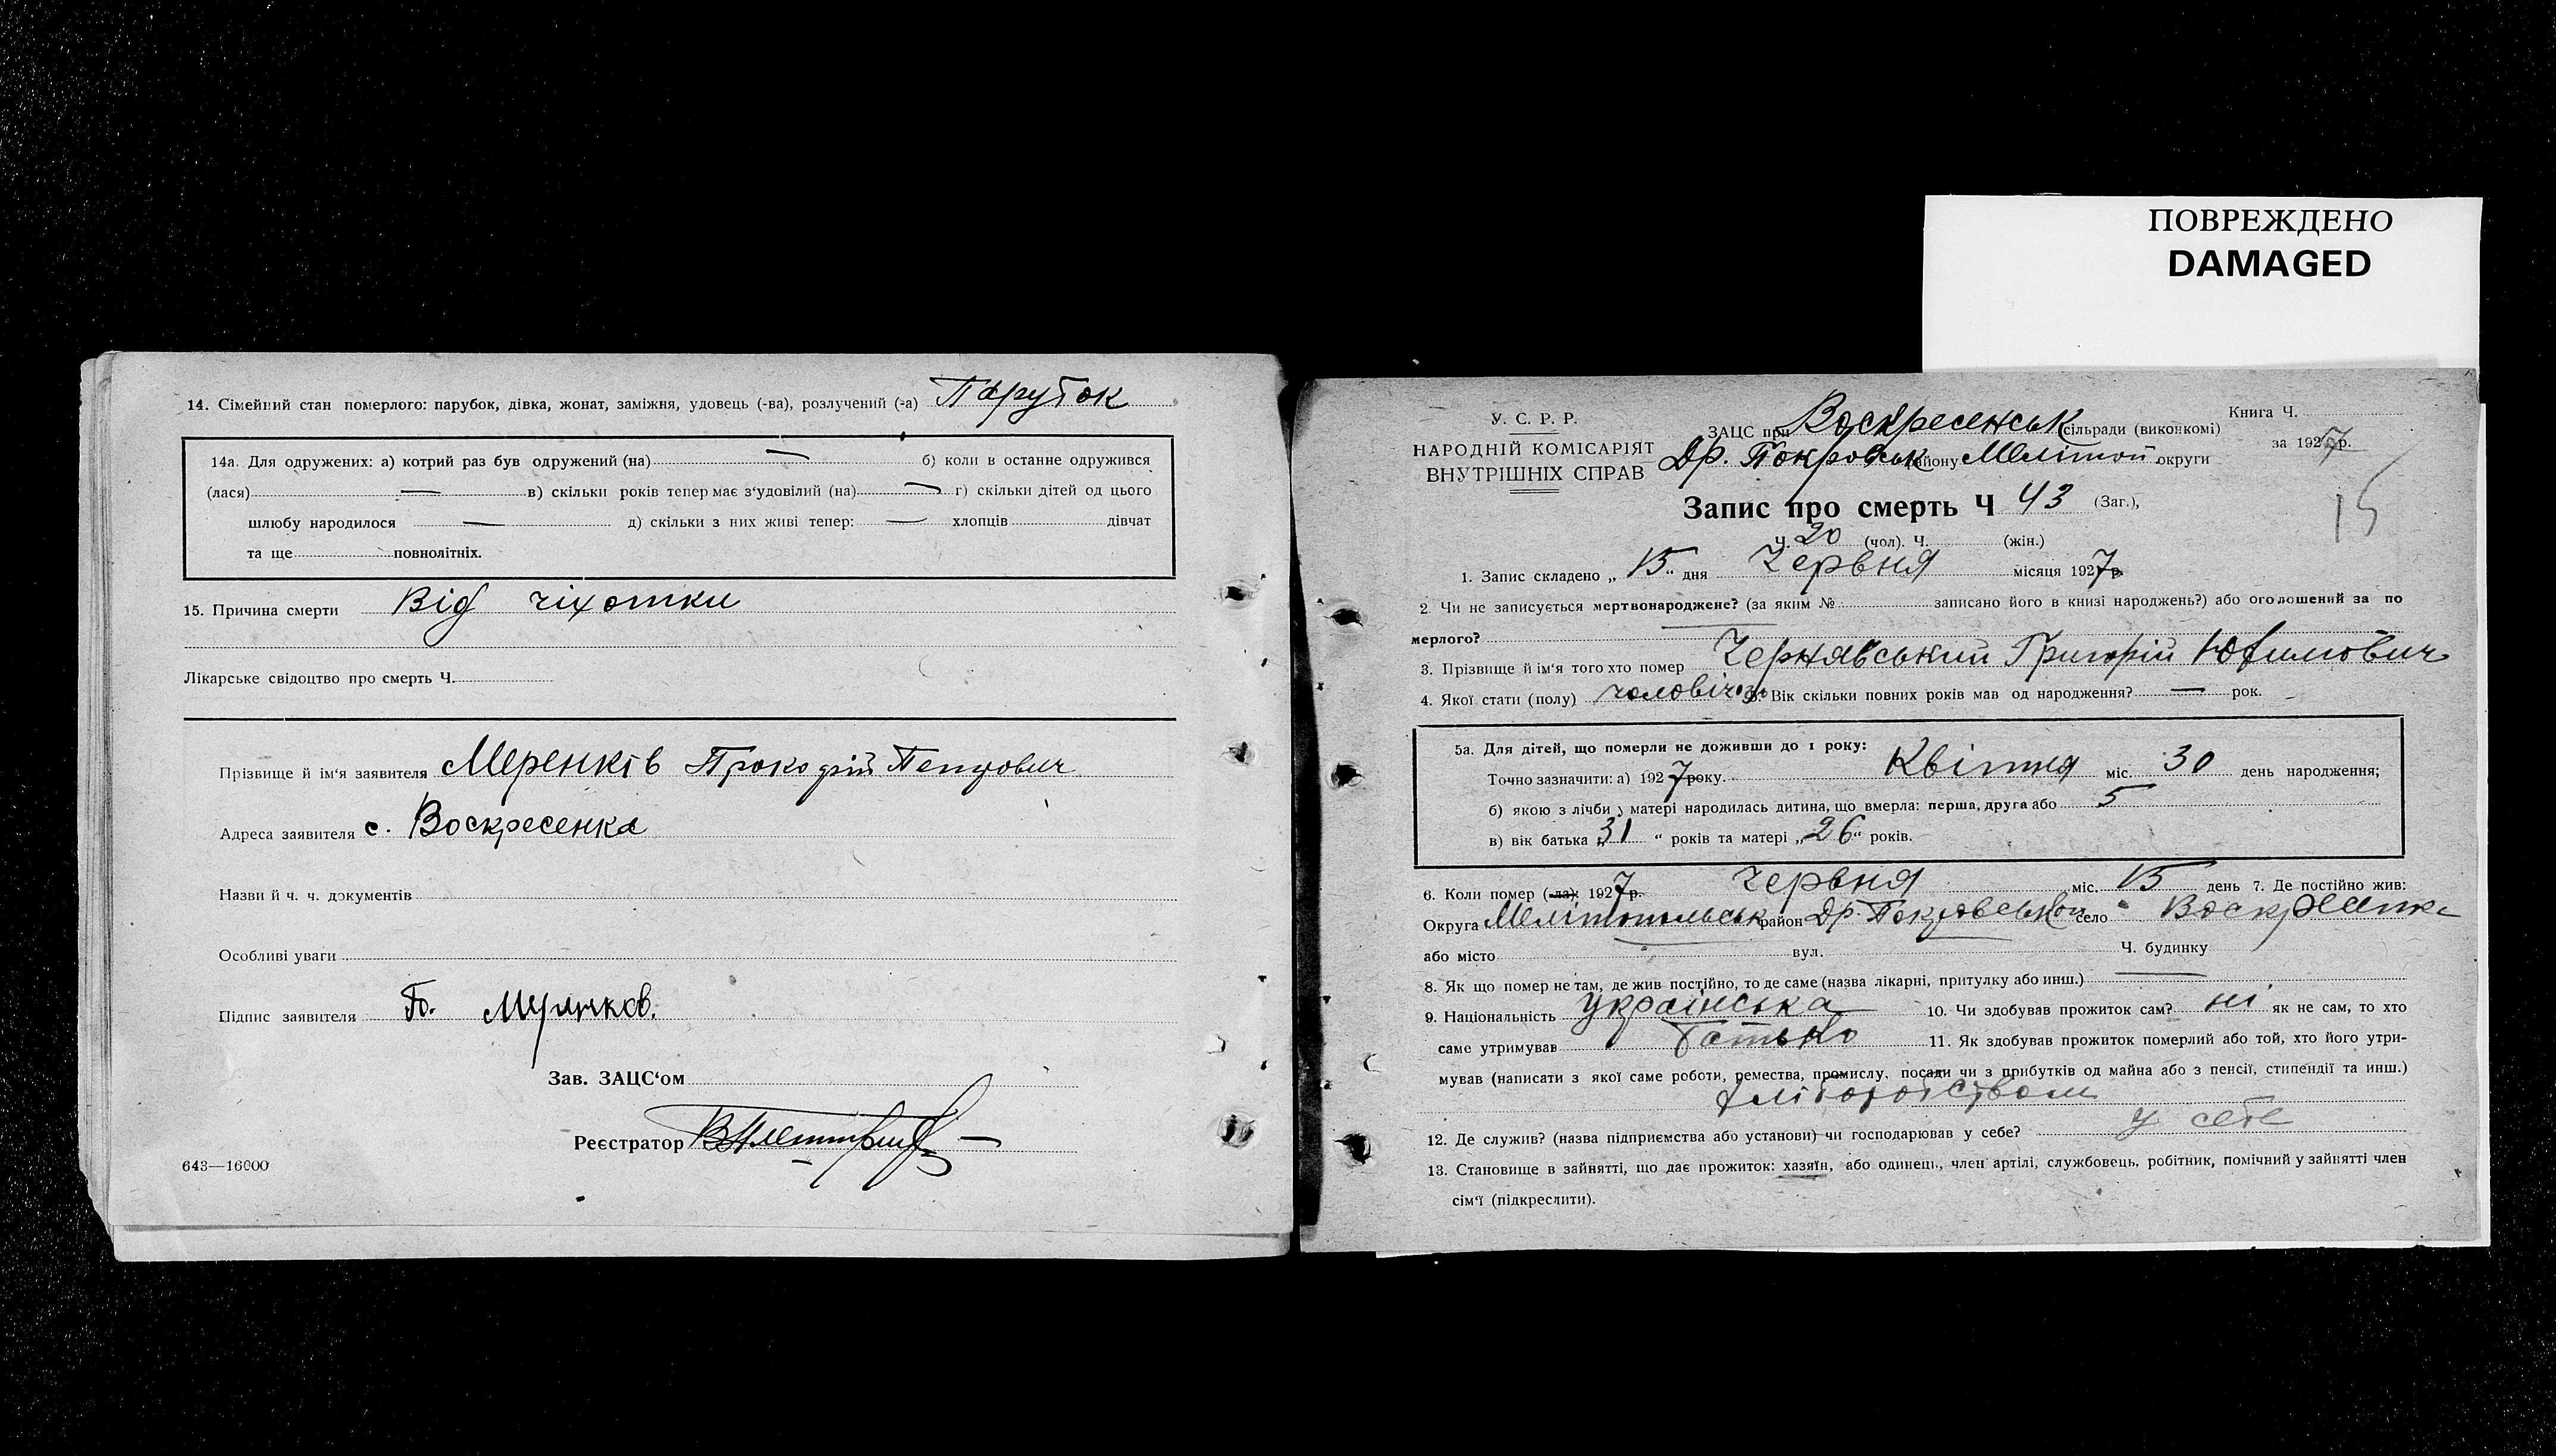 ПОВРЕЖДЕНО
DAMAGED
14. Сімейний стан померлого: парубок, дівка, жонат, заміжня, удовець (-ва), розлучений (-а) Парубок
14а. Для одружених: а) котрий раз був одружений (на) — б) коли в останне одружився
(лася) — в) скільки років тепер має з'удовілий (на) — г) скільки дітей од цього
шлюбу народилося — д) скільки з них живі тепер: — хлопців дівчат
та ще повнолітніх.
15. Причина смерти Від чіхотки
Лікарське свідоцтво про смерть Ч.
Прізвище й ім'я заявителя Меренків Прокофій Петрович
Адреса заявителя с. Воскресенка
Назви й ч. ч. документів
Особливі уваги
Підпис заявителя
Зав. ЗАЦС'ом
Реєстратор
643—16000
У. С. Р. Р.
НАРОДНІЙ КОМІСАРІЯТ
ВНУТРІШНІХ СПРАВ
Книга Ч.
за 1927 р.
ЗАЦС при Воскресенськ сільради (виконкомі)
Др. Покровськ району Мелітоп округи
15
Запис про смерть Ч 43 (Заг.),
Ч. 20 (чол). Ч. (жін.)
1. Запис складено „ 15 “ дня Червня місяця 1927 р.
2. Чи не записується мертвонароджене? (за яким № записано його в книзі народжень?) або оголошений за по
мерлого?
3. Прізвище й ім'я того хто помер Чернявський Григорій Юхимович
4. Якої стати (полу) чоловічоі 5. Вік скільки повних років мав од народження? — рок.
5а. Для дітей, що померли не доживши до 1 року:
Точно зазначити: а) 1927 року. Квітня міс. 30 день народження;
б) якою з лічби у матері народилась дитина, що вмерла: перша, друга або 5
в) вік батька „ 31 “ років та матері „ 26 “ років.
6. Коли помер (-ла): 1927 р. Червня міс. 15 день 7. Де постійно жив:
Округа Мелітопольськ район Др. Покровськой село Воскресенка
або місто вул. Ч. будинку
8. Як що помер не там, де жив постійно, то де саме (назва лікарні, притулку або инш.)
9. Національність українська 10. Чи здобував прожиток сам? ні як не сам, то хто
саме утримував батько 11. Як здобував прожиток померлий або той, хто його утри-
мував (написати з якої саме роботи, ремества, промислу, посади чи з прибутків од майна або з пенсії, стипендії та инш.)
хліборобством
12. Де служив? (назва підприємства або установи) чи господарював у себе? у себе
13. Становище в зайнятті, що дає прожиток: хазяїн, або одинець, член артілі, службовець, робітник, помічний у зайнятті член
сім'ї (підкреслити).